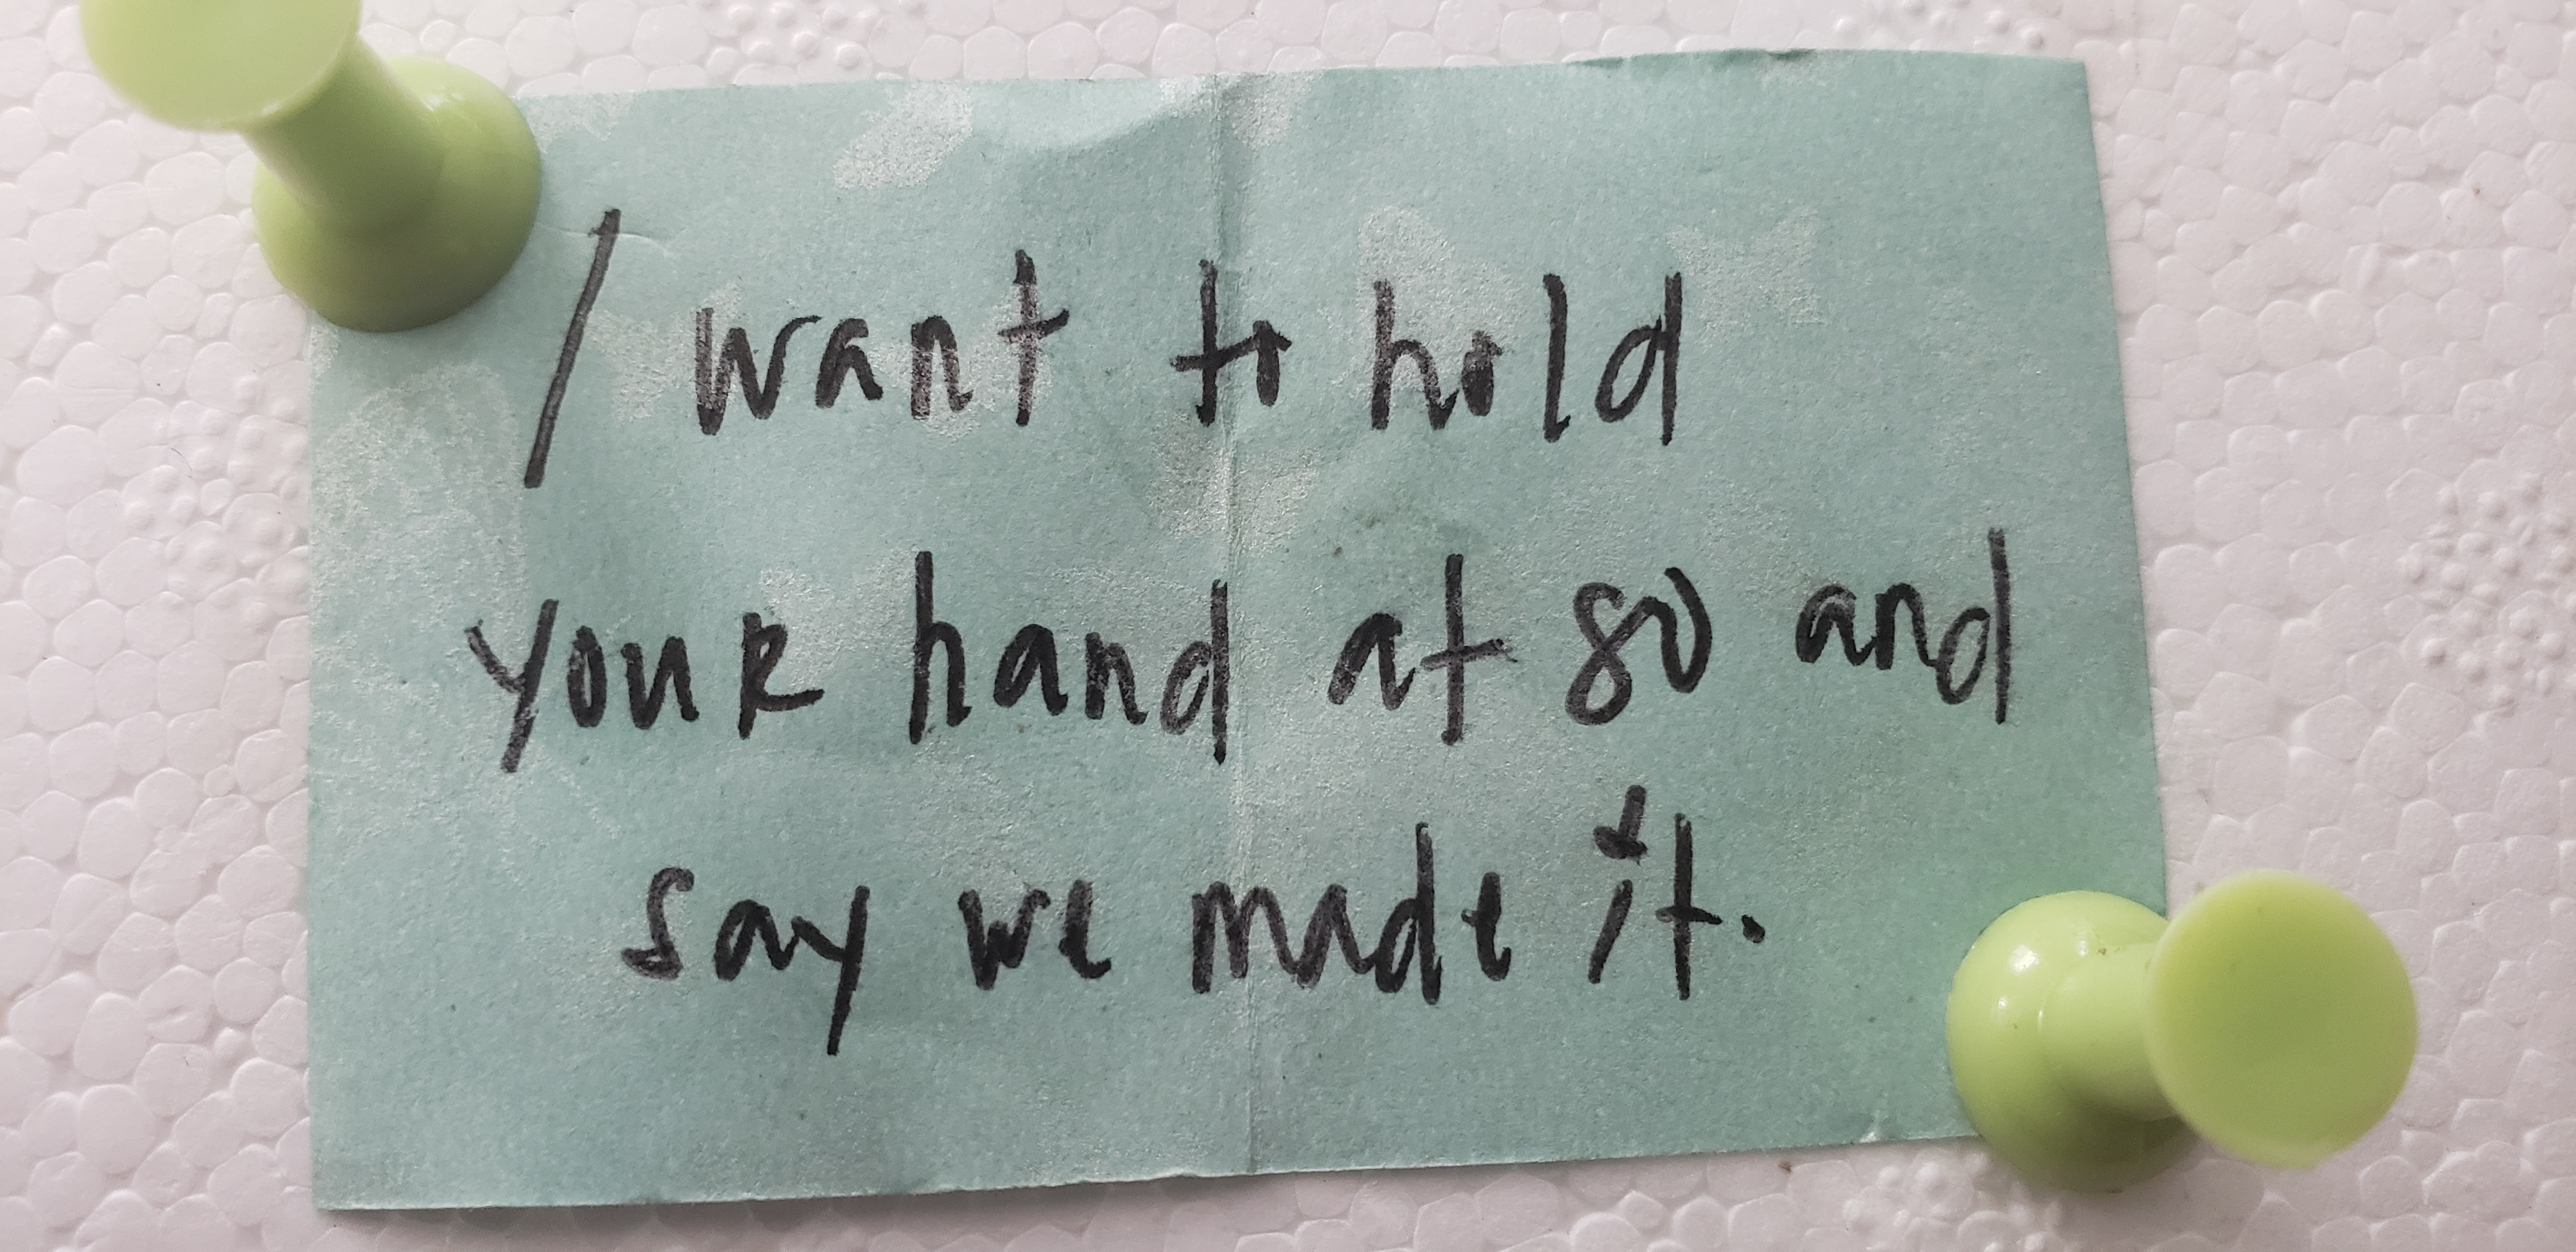 I want to hold
your hand at 80 and
say we made it.